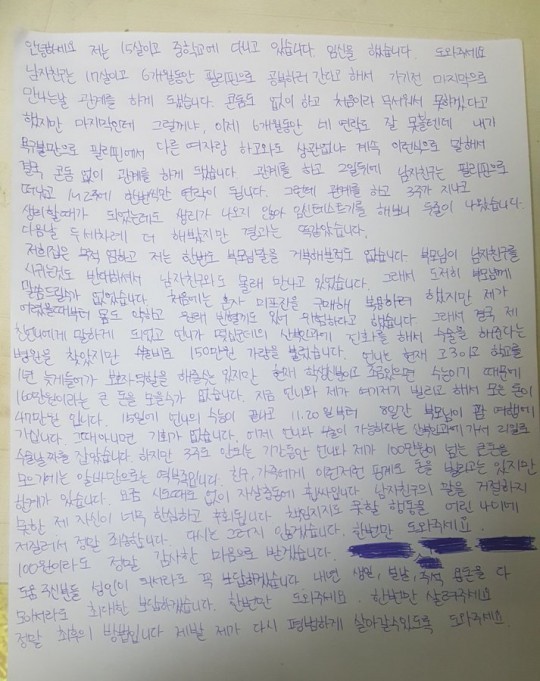 안녕하세요 저는 15살이고 중학교에 다니고 있습니다. 임신을 했습니다. 도와주세요
남자친구는 17살이고 6개월동안 필리핀으로 공부하러 간다고 해서 가기전 마지막으로
만나는날 관계를 하게 됐습니다. 콘돔도 없이 하고 처음이라 무서워서 못하겠다고
했지만 마지막인데 그럴꺼냐, 이제 6개월동안 네 연락도 잘 못할텐데 내가
필리핀에서 다른 여자랑 하고와도 상관없냐 계속 이런식으로 말해서
결국 콘돔 없이 관계를 하게 됐습니다 관계를 하고 2일뒤에 남자친구는 필리핀으로
떠나고 1,2주에 한번씩만 연락이 됩니다. 그런데 관계를 하고 3주가 지나고
생리할때가 되었는데도 생리가 나오지 않아 임신테스트기를 해보니 두줄이 나왔습니다.
다음날 두세차례 더 해봤지만 결과는 똑같았습니다.
저희집은 엄하고 저는 한번도 부모님말을 거역해본적도 없습니다 부모님이 남자친구를
사귀는것도 반대하셔서 남자친구와도 몰래 만나고 있었습니다. 그래서 도저히 부모님께
말씀드릴수가 없었습니다 처음에는 혼자 미프진을 구매해 복용하려 했지만 제가
어렸을때부터 몸도 약하고 원래 빈혈끼도 있어 위험하다고 했습니다 그래서 결국 제
친언니에게 말하게 되었고 언니가 산부인과에 전화를 해서 수술을 해준다는
병원을 찾았지만 수술비로 150만원 가량을 불렀습니다. 언니는 현재 고3이고 학교를
1년 늦게들어가 보호자역할을 해줄수는 있지만 현재 학생신분이고 조금있으면 수능이기 때문에
160만원이라는 큰 돈을 모을수가 없습니다. 지금 언니와 제가 여기저기 빌리고 해서 모은 돈이
47만원 입니다. 15일에 언니의 수능이 끝나고 11.20일부터 8일간 부모님이 괌 여행에
가십니다 그때아니면 기회가 없습니다. 어제 언니와 수술이 가능하다는 산부인과에 가서 리얼로
수술날짜를 잡았습니다 하지만 3주도 안되는 기간동안 언니와 제가 100만원이 넘는 큰돈을
모으기에는 알바만으로는 역부족입니다. 친구, 가족에게 이런저런 핑계로 돈을 빌리고는 있지만
한계가 있습니다. 요즘 시도때도 없이 자살충동에 휩싸입니다 남자친구의 말을 거절하지
못한 제 자신이 너무 한심하고 후회됩니다 책임지지도 못할 행동을 어린 나이에
저질러서 정말 죄송합니다. 다시는 그러지 않겠습니다. 한번만 도와주세요.
100원이라도 정말 감사한 마음으로 받겠습니다.
도움 주신분들 성인이 되어서라도 꼭 보답하겠습니다 내년 생일, 설날, 추석 용돈을 다
모아서라도 최대한 보답하겠습니다. 한번만 도와주세요. 한번만 살려주세요
정말 최후의 방법입니다 제발 제가 다시 평범하게 살아갈수있도록 도와주세요.